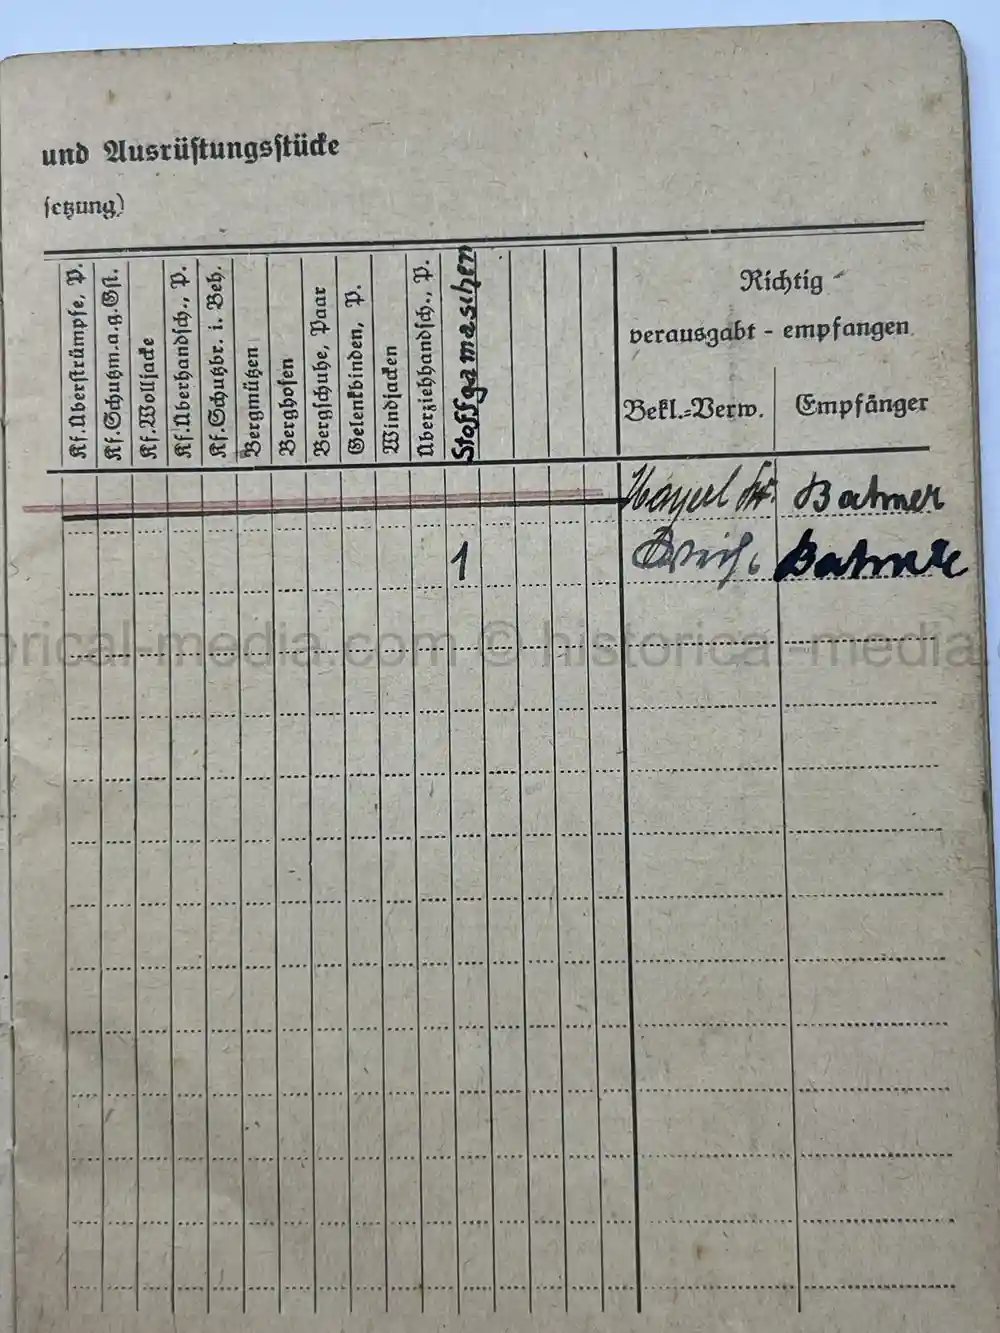 und Ausrüstungsstücke
setzung)
Kf. Überstrümpfe, P.
Kf. Schutzm. a. g. Gst.
Kf. Wolljacke
Kf. Überhandsch., P.
Kf. Schutzbr. i. Beh.
Bergmützen
Berghosen
Bergschuhe, Paar
Gelenkbinden, P.
Windjacken
Überziehhandsch., P.
Stoffgamaschen
Richtig
verausgabt - empfangen
Bekl.-Verw. Empfänger
Bahmer
1 Bahmer
orical-media.com © historical-media.